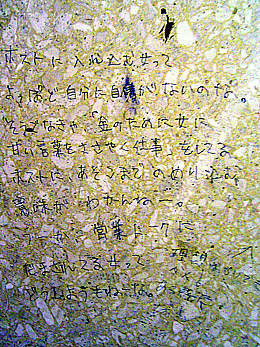 ホストに入れ込む女って
よっぽど自分に自信がないのな。
そうでなきゃ「金のために女に
甘い言葉をささやく仕事」をしてる
ホストに、あそこまでのめり込む
意味がわかんねー。
つうか、営業トークに
だまされてる女って 理解
しようもねーな。